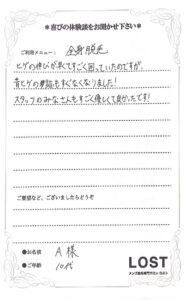 ＊喜びの体験談をお聞かせ下さい＊
ご利用メニュー： 全身脱毛
ヒゲの伸びが早くてすごく困っていたのですが、
青ヒゲの悩みもすくなくなりました！
スタッフのみなさんもすごく優しくて良かったです！
ご要望など、ございましたらどうぞ
●お名前 A 様
●ご年齢 10代
LOST
メンズ脱毛専門サロン ロスト